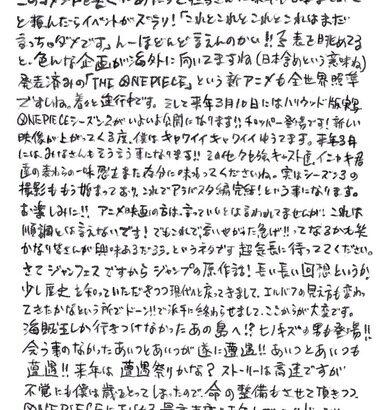 と頼んだらイベントがズラリ!「これとこれとこれとこれはまだ
言っちゃダメです。」んーほとんど言えんのかい!!予表を眺めてる
と、色んな企画が海外に向いてますね(日本含めという意味ね)
発表済みの「THE ONE PIECE」という新アニメも全世界照準
ですしね。着々と進行中です。そして来年3月10日にはハリウッド版実写
ONE PIECEシーズン2がいよいよ公開になります!!チョッパー登場です!新しい
映像が上がってくる度、僕はキャワイイキャワイイゆうてます。来年3月
には、みなさんも言う事になります!!その他クセ強キャスト達、イーストを
直の麦わらの一味恐もまた存分に味わってくださいね。実はシーズン3の
撮影ももう始まっており、これでアラバスタ編完結!という事になります。
お楽しみに!!アニメ映画の方は、言っていいとは言われてませんが、これは
順調とは言えないです!でもこれで、
かなり皆さんが興味あるだろう、というネタです。超気長に待っててください。
さてジャンフェスですからジャンプの原作話!長い長い回想というか
少し歴史を知っていただきつつ現代に戻ってきまして、エルバフの見え方も変わっ
てきたかなという所でドーン!!で派手に終わらせまして、ここからが大変です。
海賊王しか行きつけなかったあの島へ!?ヒノキズの男も登場!!
会う事のなかったあいつとあいつが遂に遭遇!!あいつとあいつも
遭遇!!来年は遭遇祭りかな?ストーリーは高速ですが
不覚にも僕は歳をとってしまったので、命の整備もさせて頂きつつ